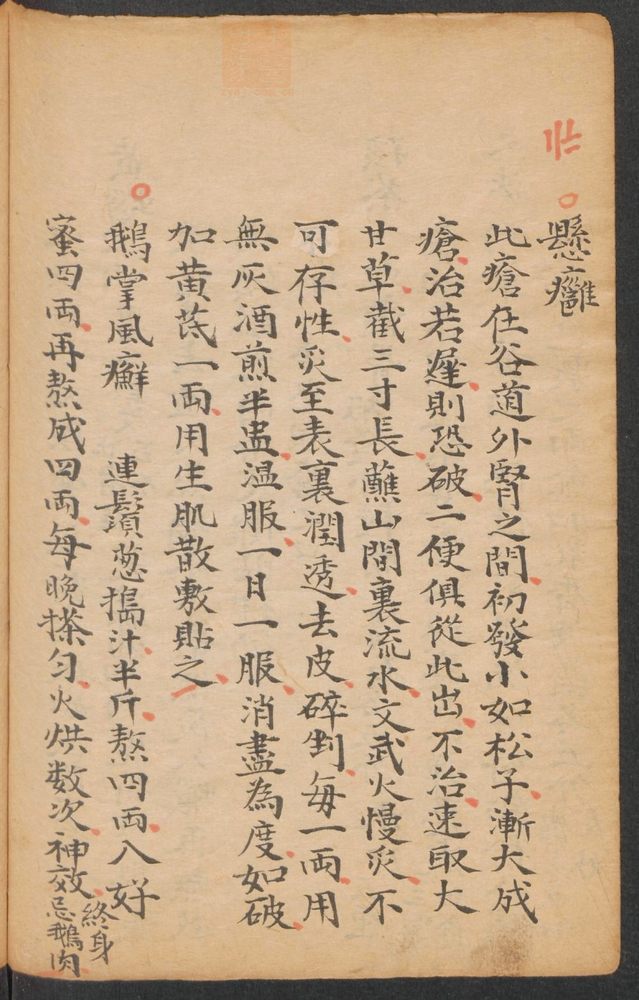 懸癰
此瘡在谷道外腎之間初發小如松子漸大成
瘡治若遲則恐破二便俱從此出不治速取大
甘草截三寸長蘸山間裏流水文武火慢炙不
可存性炙至表裏潤透去皮碎剉每一兩用
無灰酒煎半盅温服一日一服消盡為度如破
加黄茋一兩用生肌散敷貼之
鵝掌風癬 連鬚葱搗汁半斤熬四兩入好
蜜四兩再熬成四兩每晚搽匀火烘数次神效終身忌鵝肉